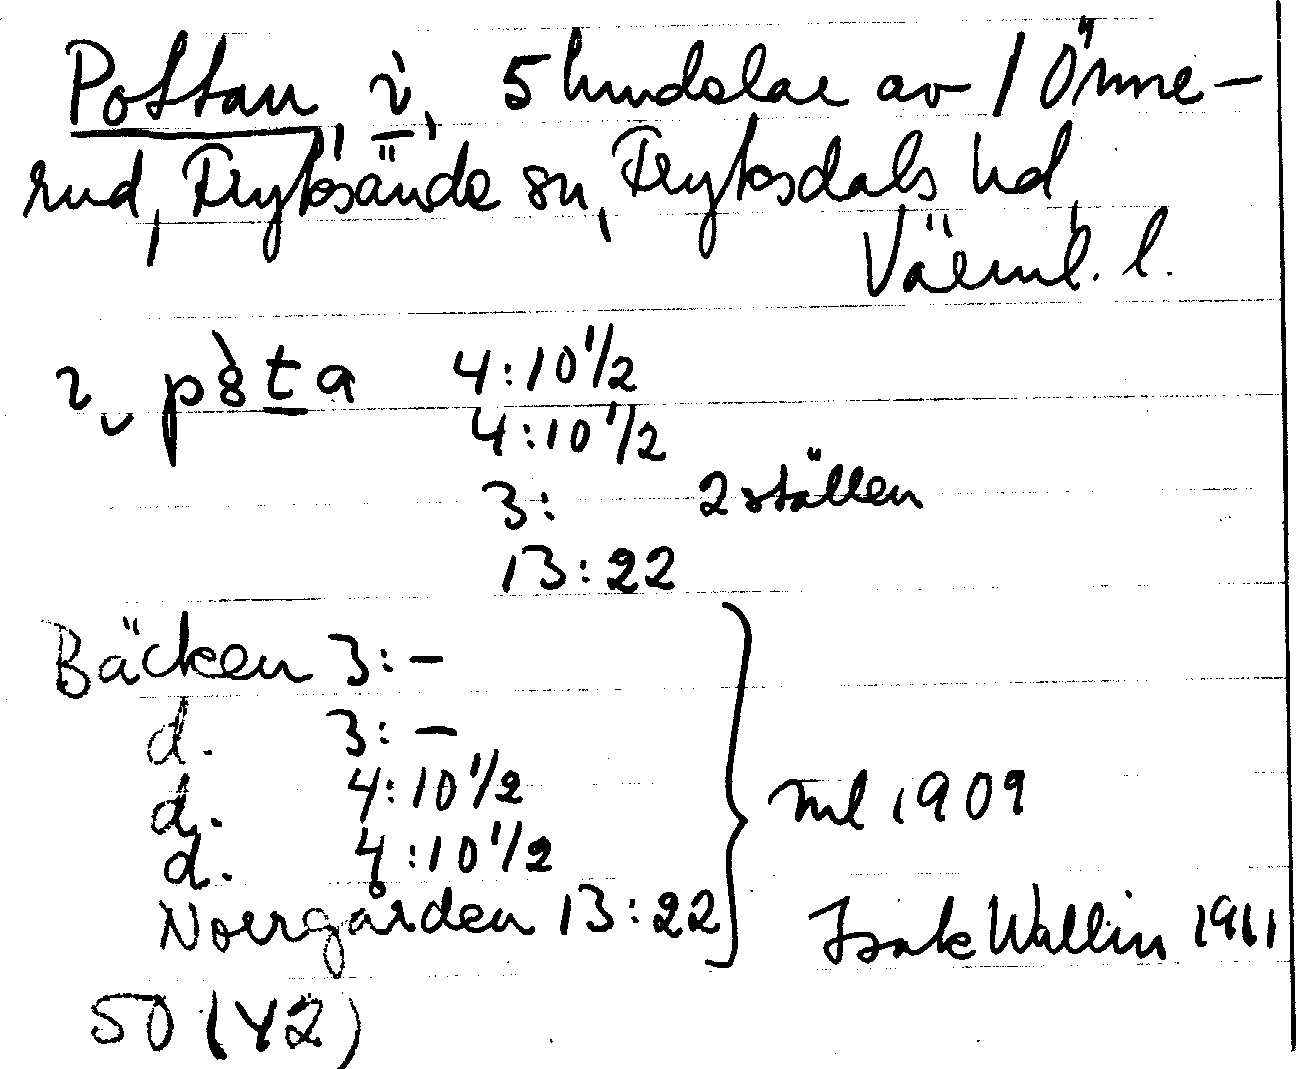 Pottan, i, 5 hundelar av 1 Önne-
rud, Fryksände sn, Fryksdals hd,
Värml. l.
i pòta 4:10 1/2
4:10 1/2
3: 2 ställen
13:22
Bäcken 3:-
d. 3:-
d. 4:10 1/2
d. 4:10 1/2
Norrgården 13:22
ml 1909
Isak Wallin 1911
50 (Y2)